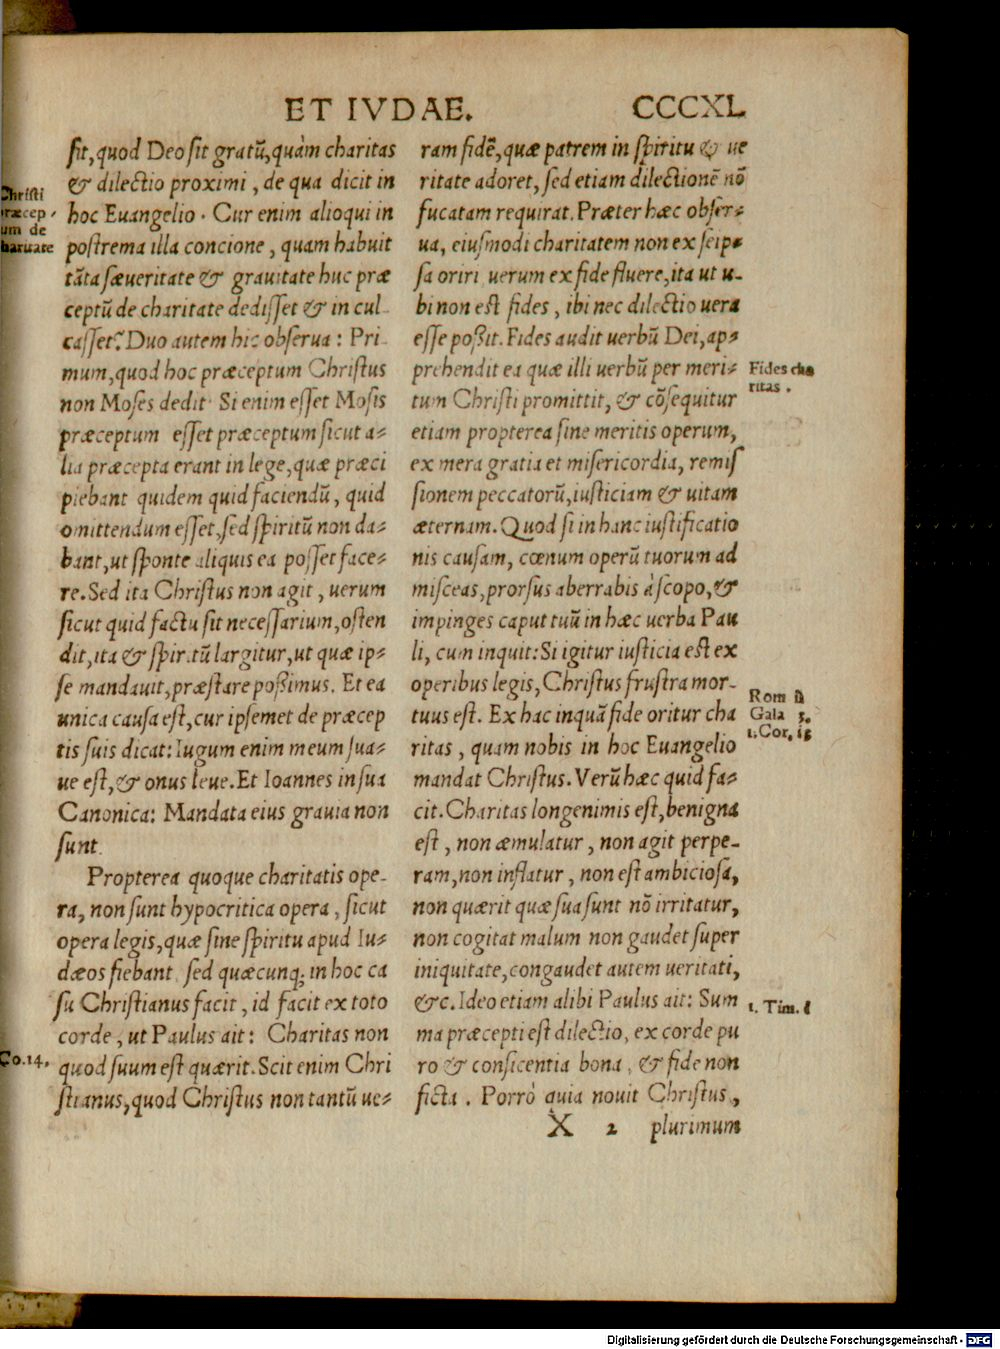 ET IVDAE.
CCCXL
sit, quod Deo sit gratũ, quàm charitas
& dilectio proximi, de qua dicit in
hoc Euangelio. Cur enim alioqui in
postrema illa concione, quam habuit
tãta sæueritate & grauitate huc præ
ceptũ de charitate dedisset & in cul-
casset? Duo autem hic obserua: Pri-
mum, quod hoc præceptum Christus
non Moses dedit. Si enim esset Mosis
præceptum esset præceptum sicut a-
lia præcepta erant in lege, quæ præci
piebant quidem quid faciendũ, quid
omittendum esset, sed spiritũ non da-
bant, ut sponte aliquis ea posset face-
re. Sed ita Christus non agit, uerum
sicut quid factu sit necessarium, osten
dit, ita & spiritũ largitur, ut quæ ip-
se mandauit, præstare possimus. Et ea
unica causa est, cur ipsemet de præcep
tis suis dicat: Iugum enim meum sua-
ue est, & onus leue. Et Ioannes in sua
Canonica: Mandata eius grauia non
sunt.
Propterea quoque charitatis ope-
ra, non sunt hypocritica opera, sicut
opera legis, quæ sine spiritu apud Iu-
dæos fiebant, sed quæcunq; in hoc ca
su Christianus facit, id facit ex toto
corde, ut Paulus ait: Charitas non
quod suum est quærit. Scit enim Chri
stianus, quod Christus non tantũ ue-
Christi
præcep-
um de
haruate
Co.14.
ram fidẽ, quæ patrem in spiritu & ue
ritate adoret, sed etiam dilectionẽ nõ
fucatam requirat. Præter hæc obser-
ua, eiusmodi charitatem non ex seip-
sa oriri uerum ex fide fluere, ita ut u-
bi non est fides, ibi nec dilectio uera
esse possit. Fides audit uerbũ Dei, ap-
prehendit ea quæ illi uerbũ per meri-
tum Christi promittit, & cõsequitur
etiam propterea sine meritis operum,
ex mera gratia et misericordia, remis
sionem peccatorũ, iusticiam & uitam
æternam. Quod si in hanc iustificatio
nis causam, cœnum operũ tuorum ad
misceas, prorsus aberrabis à scopo, &
impinges caput tuũ in hæc uerba Pau
li, cum inquit: Si igitur iusticia est ex
operibus legis, Christus frustra mor-
tuus est. Ex hac inquã fide oritur cha
ritas, quam nobis in hoc Euangelio
mandat Christus. Verũ hæc quid fa-
cit. Charitas longenimis est, benigna
est, non æmulatur, non agit perpe-
ram, non inflatur, non est ambiciosa,
non quærit quæ sua sunt nõ irritatur,
non cogitat malum non gaudet super
iniquitate, congaudet autem ueritati,
&c. Ideo etiam alibi Paulus ait: Sum
ma præcepti est dilectio, ex corde pu
ro & consicentia bona, & fide non
ficta. Porrò quia nouit Christus,
Fides cha
ritas.
Rom
Gala 3.
1.Cor. 13
1. Tim. 1
X 2 plurimum
Digitalisierung gefördert durch die Deutsche Forschungsgemeinschaft - DFG